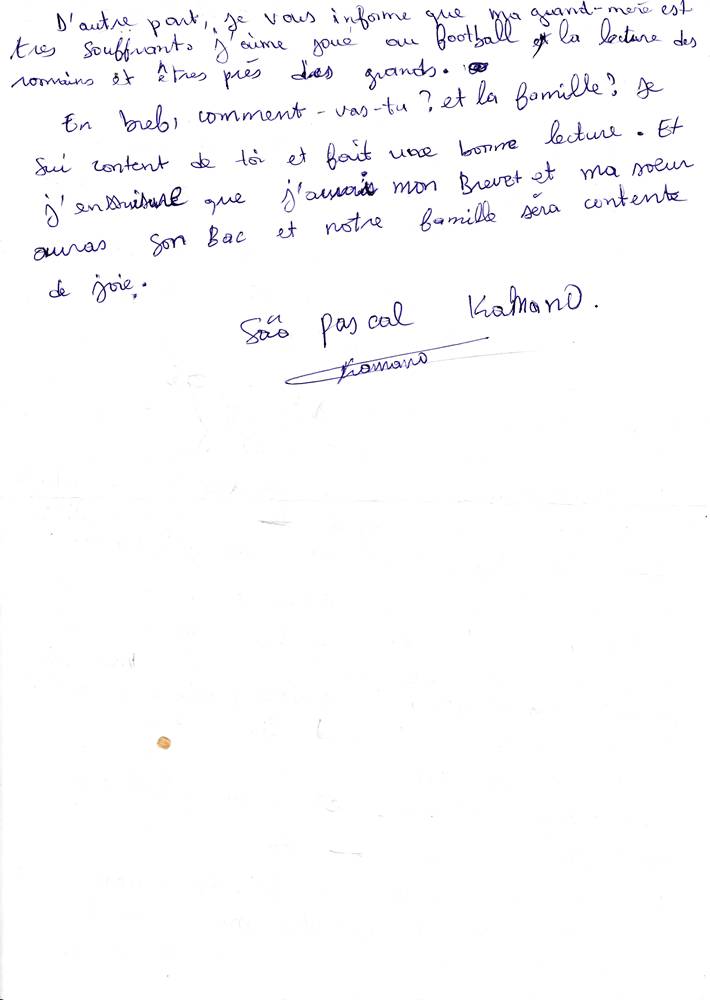 D'autre part, je vous informe que ma grand-mère est
très souffrant. j'aime joué au football et la lecture des
romains et êtres près des grands.
En bref, comment-vas-tu? et la famille? Je
sui content de toi et fait une bonne lecture. Et
j'en que j'aurais mon Brevet et ma soeur
auras son Bac et notre famille séra contente
de joie.
Sâa pascal KaMANO.
Kamano